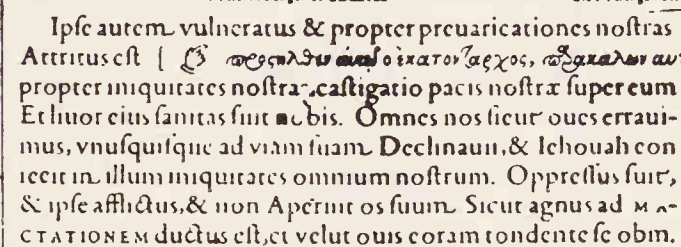 Ipſe autem vulneratus & propter preuaricationes noſtras
Attritus eſt [ & προςηλθεν αυτῳ ὁ ἑκατονταρχος, παρακαλων αυ
propter iniquitates noſtras caſtigatio pacis noſtræ ſuper eum
Et liuor eius ſanitas fuit nobis. Omnes nos ſicut oues erraui-
mus, vnuſquiſque ad viam ſuam Declinauit, & Iehouah con
iecit in illum iniquitates omnium noſtrum. Oppreſſus fuit,
& ipſe afflictus, & non Aperuit os ſuum Sicut agnus ad MA-
CTATIONEM ductus eſt, et velut ouis coram tondente ſe obm,